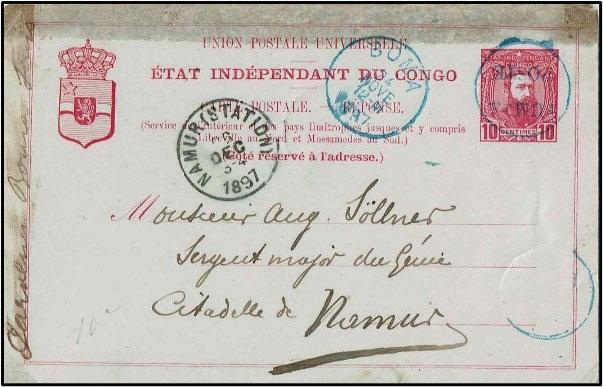 UNION POSTALE UNIVERSELLE
ÉTAT INDÉPENDANT DU CONGO
CARTE POSTALE. — RÉPONSE.
(Service de l'intérieur et des pays limitrophes jusques et y compris
Libreville au Nord et Mossamedes au Sud.)
(Côté réservé à l'adresse.)
ÉTAT INDÉPENDANT DU CONGO
10 CENTIMES 10
BOMA
NOVE
1897
NAMUR (STATION)
DEC
3-4
1897
Monsieur Aug. Söllner
Sergent major du Génie
Citadelle de Namur